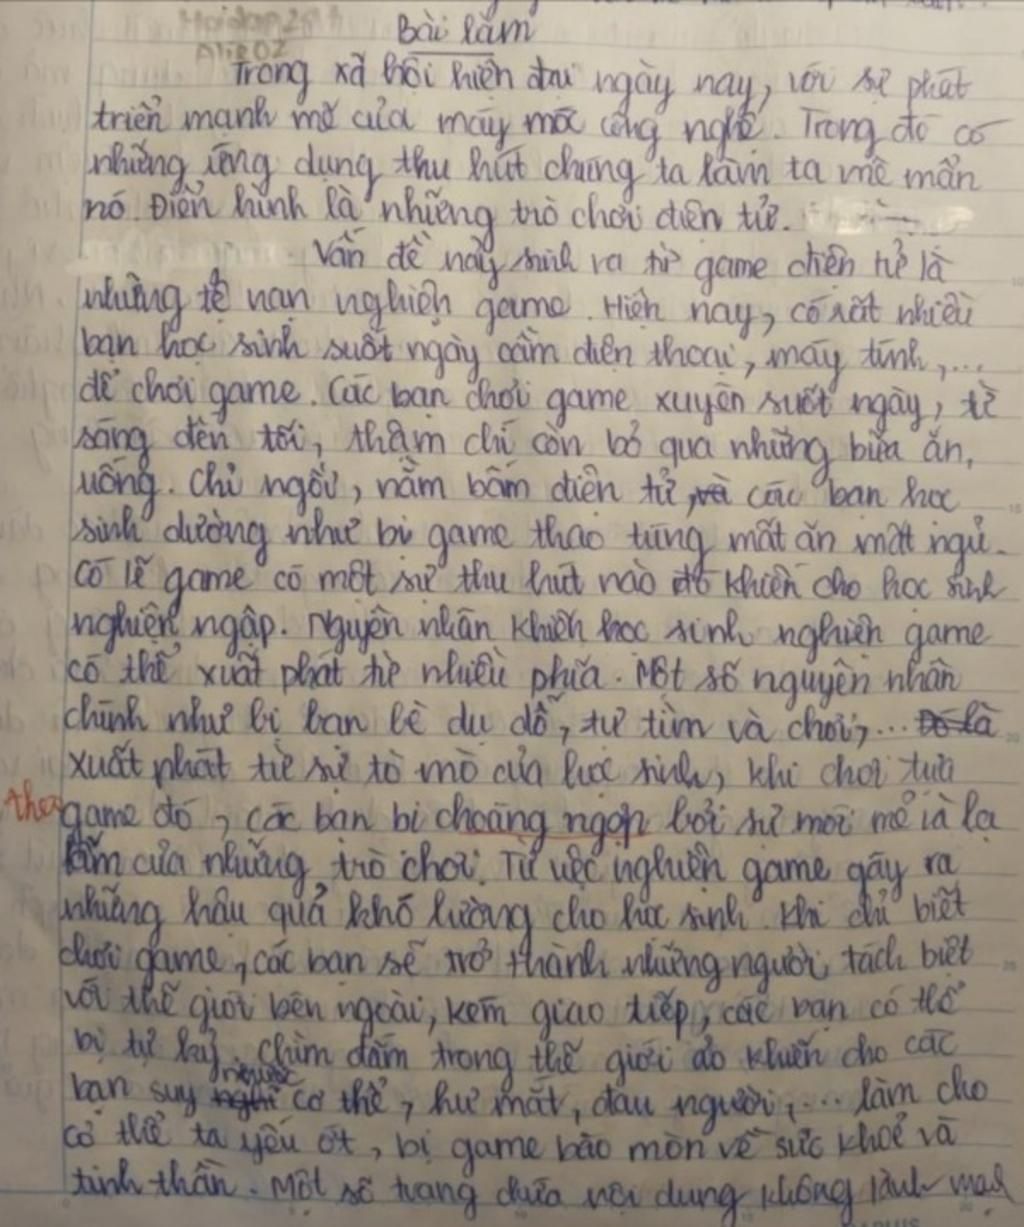 Bài làm
Trong xã hội hiện đại ngày nay, với sự phát
triển mạnh mẽ của máy móc công nghệ. Trong đó có
những ứng dụng thu hút chúng ta làm ta mê mẩn
nó. Điển hình là những trò chơi điện tử.
Vấn đề nảy sinh ra từ game điện tử là
những tệ nạn nghiện game. Hiện nay, có rất nhiều
bạn học sinh suốt ngày cầm điện thoại, máy tính,...
để chơi game. Các bạn chơi game xuyên suốt ngày, từ
sáng đến tối, thậm chí còn bỏ qua những bữa ăn,
uống. Chỉ ngồi, nằm bấm điện tử, các bạn học
sinh dường như bị game thao túng mất ăn mất ngủ.
Có lẽ game có một sự thu hút nào đó khiến cho học sinh
nghiện ngập. Nguyên nhân khiến học sinh nghiện game
có thể xuất phát từ nhiều phía. Một số nguyên nhân
chính như bị bạn bè dụ dỗ, tự tìm và chơi,... Đó là
xuất phát từ sự tò mò của học sinh, khi chơi tựa
game đó, các bạn bị choáng ngợp bởi sự mới mẻ và lạ
lẫm của những trò chơi. Từ việc nghiện game gây ra
những hậu quả khó lường cho học sinh. Khi chỉ biết
chơi game, các bạn sẽ trở thành những người tách biệt
với thế giới bên ngoài, kém giao tiếp, các bạn có thể
bị tự kỷ. Chìm đắm trong thế giới ảo khiến cho các
bạn suy nhược cơ thể, hư mắt, đau người,... làm cho
cơ thể ta yếu ớt, bị game bào mòn về sức khoẻ và
tinh thần. Một số trang chứa nội dung không lành mạnh